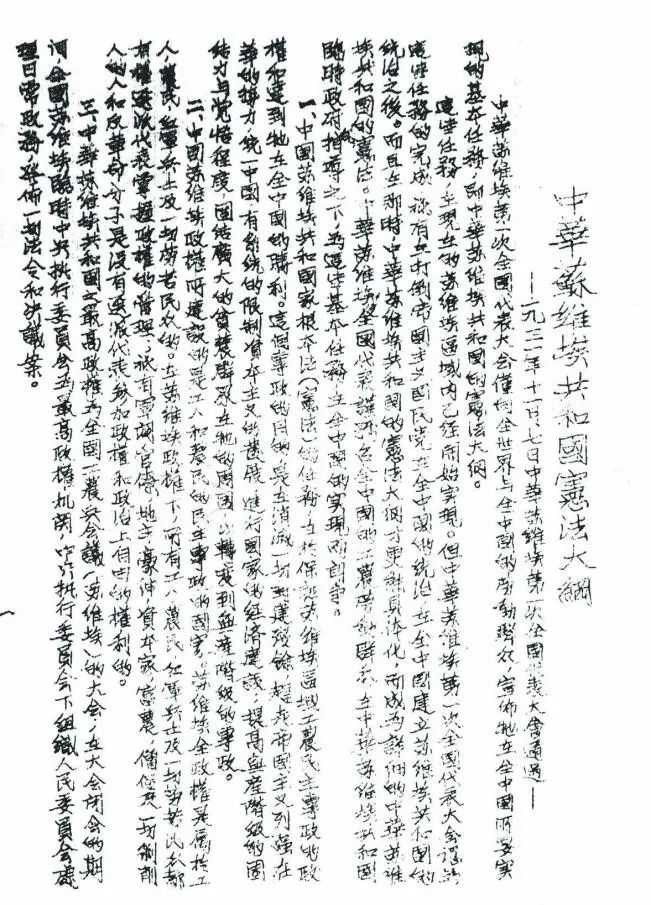 中華蘇維埃共和國憲法大綱
—一九三一年十一月七日中華苏維埃第一次全國代表大會通過—
中華苏維埃第一次全國代表大会谨向全世界与全中國的劳動群众，宣佈牠在全中國所要实
現的基本任務，即中華苏維埃共和國的憲法大綱。
這些任務，在現在的苏維埃區域內已經開始实現。但中華苏維埃第一次全國代表大会認為
這些任務的完成，祇有在打倒帝國主义國民党在全中國的統治，在全中國建立苏維埃共和國的
統治之後。而且在那時，中華苏維埃共和國的憲法大綱才更能具体化，而成為詳細的中華苏維
埃共和國的憲法。中華苏維埃全國代表謹号召全中國的工農劳動群众，在中華苏維埃共和國
臨時政府指導之下，為這些基本任務在全中國的实現而鬥爭。
一、中國苏維埃共和國家根本法（憲法）的任務，在於保証苏維埃區域工農民主專政的政
權和達到牠在全中國的勝利。這個專政的目的，是在消滅一切封建殘餘，趕走帝國主义列强在
華的势力，統一中國，有系統的限制資本主义的發展，進行國家的經济建設，提高無產階級的團
結力与觉悟程度，團結廣大的貧農群众在牠的周圍，以轉变到無產階級的專政。
二、中國苏維埃政權所建設的是工人和農民的民主專政的國家。苏維埃全政權是屬於工
人，農民，紅軍兵士及一切劳苦民众的。在苏維埃政權下，所有工人，農民，紅軍兵士及一切劳苦民众都
有權選派代表掌握政權的管理，祇有軍閥，官僚，地主，豪紳，資本家，富農，僧侶及一切剝削
人的人和反革命分子是没有選派代表参加政權和政治上自由的權利的。
三、中華苏維埃共和國之最高政權為全國工農兵会議（苏維埃）的大会，在大会閉会的期
间，全國苏維埃臨時中央执行委員会為最高政權机関，中央执行委員会下組織人民委員会處
理日常政務，發佈一切法令和决議案。